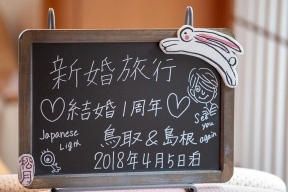 新婚旅行
♡結婚1周年♡
Japanese
Light
鳥取&島根
See
you
again
2018年4月5日泊
松月